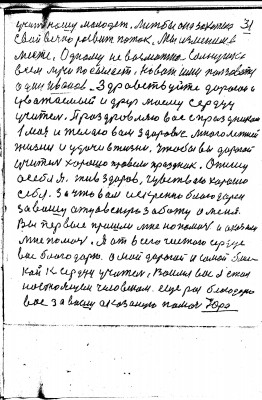 31
свой вечно ровный поток. Мы изменить в
месте, Одному не возможно. Солнышко
всем лучи посылает, к
один Иванов. Здравствуйте дорогой
уважаемый и друг моему сердцу
учитель. Поздровляю вас с праздником
1 мая и желаю вам здоровие многолетней
жизни и удачи в жизни. Чтобы вы дорогой
учитель хорошо провели праздник. Опишу
о себе я. жив здоров, чувствую хорошо
себя. За что вам искренно благодарен
за вашу отцовскую заботу о меня.
Вы первые пришли мне на помощь и оказали
мне помощ. Я от всего чистого сердца
вас благодарю. о мой дорогой и самой близ-
кой к сердцу учитель, Возле вас я стал
настоящим человеком. еще раз благодарю
вас за вашу оказаную помощ Юра